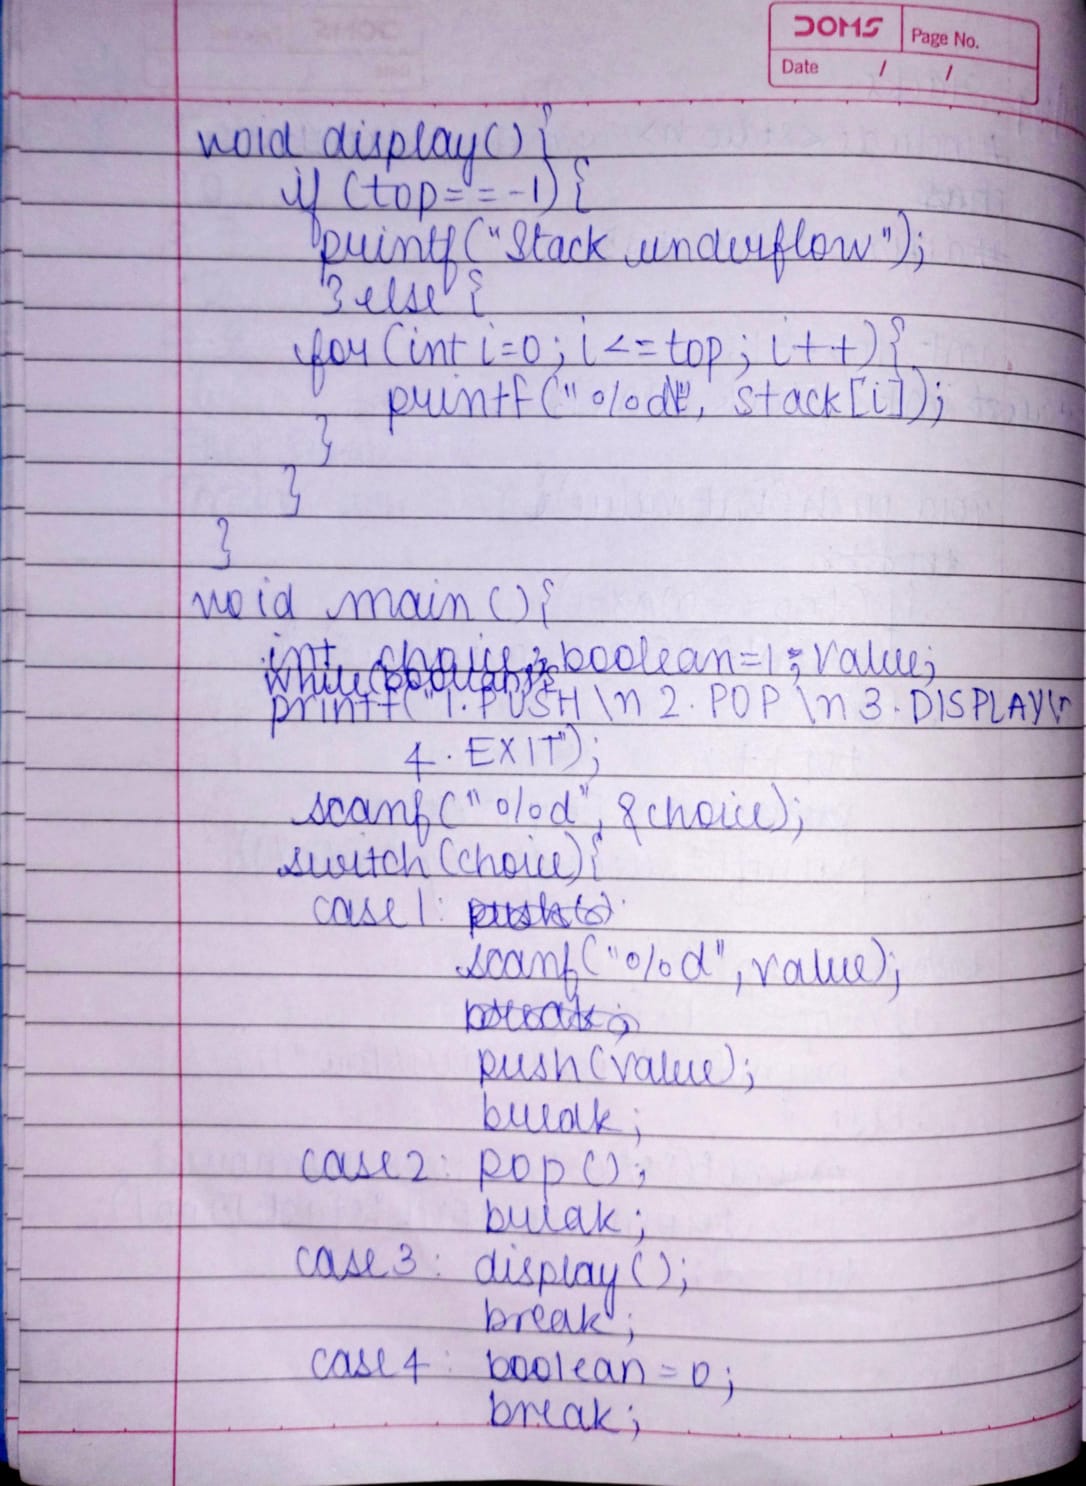 DOMS
Page No.
Date / /
void display(){
if (top==-1){
printf("Stack underflow");
}else{
for(int i=0; i<=top; i++){
printf("%d", stack[i]);
}
}
}
void main(){
int choice, boolean=1, value;
while(boolean){
printf("1.PUSH\n 2.POP\n 3.DISPLAY\n
4.EXIT");
scanf("%d", &choice);
switch(choice){
case1:
scanf("%d", value);
push(value);
break;
case2: pop();
break;
case3: display();
break;
case4: boolean=0;
break;